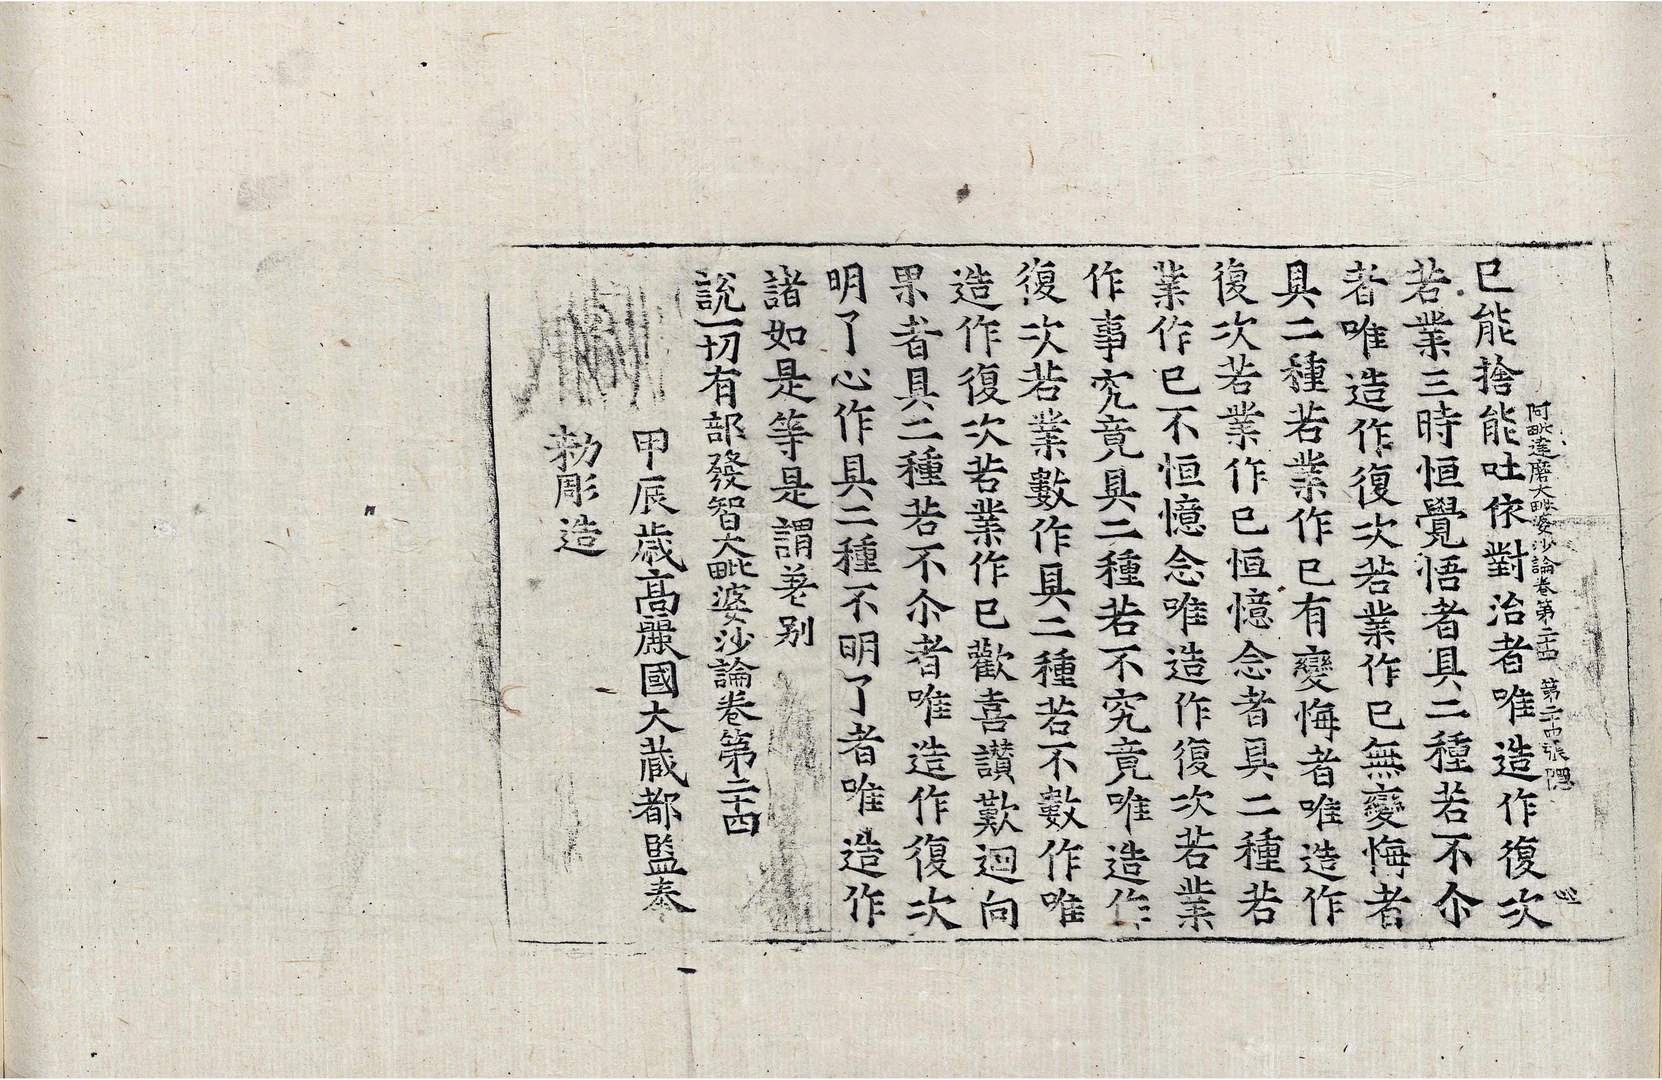 阿毗達磨大毗婆沙論卷第二十四 第二十四張 隱
已能捨能吐依對治者唯造作復次
若業三時恒覺悟者具二種若不尒
者唯造作復次若業作已無變悔者
具二種若業作已有變悔者唯造作
復次若業作已恒憶念者具二種若
業作已不恒憶念唯造作復次若業
作事究竟具二種若不究竟唯造作
復次若業數作具二種若不數作唯
造作復次若業作已歡喜讃歎迴向
果者具二種若不尒者唯造作復次
明了心作具二種不明了者唯造作
諸如是等是謂差别
說一切有部發智大毗婆沙論卷第二十四
甲辰歳高麗國大藏都監奉
勅彫造